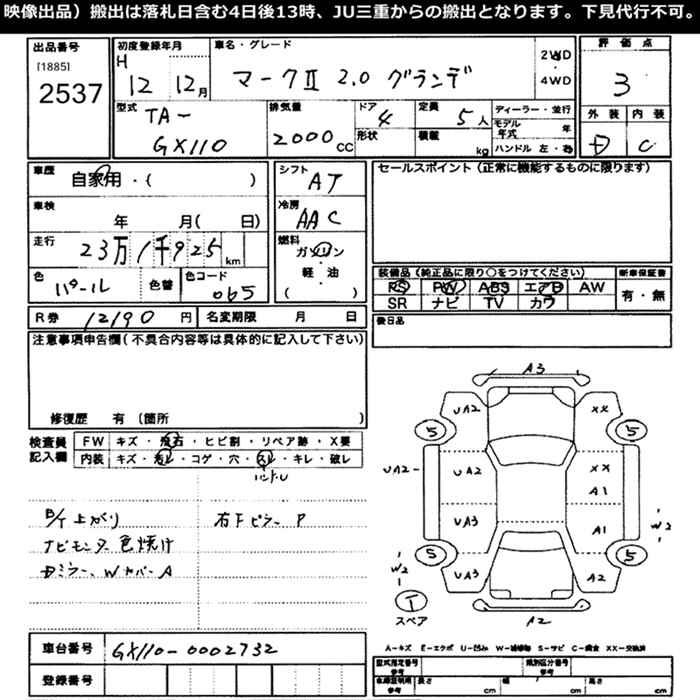 映像出品）搬出は落札日含む4日後13時、JU三重からの搬出となります。下見代行不可。
出品番号
[1885]
2537
初度登録年月
H
12 12月
車名・グレード
マークⅡ 2.0 グランデ
2WD
・
4WD
評価点
3
外装 内装
D C
型式
TA-
GX110
排気量
2000 CC
ドア
4
形状
定員
5人
積載
kg
ディーラー・並行
モデル年式 年
ハンドル 左・右
車歴
自家用・( )
車検
年 月( 日)
走行
23万1千925 km
色
パール
色替
色コード
065
シフト
AT
冷房
AAC
燃料
ガソリン
・
軽油
( )
セールスポイント（正常に機能するものに限ります）
装備品（純正品に限り○をつけてください）
新車保証書
PS PW ABS エアB AW
SR ナビ TV カワ
有・無
後日品
R券 12190 円
名変期限 月 日
注意事項申告欄（不具合内容等は具体的に記入して下さい）
修復歴 有（箇所 ）
検査員
記入欄
FW キズ・飛石・ヒビ割・リペア跡・X要
内装 キズ・汚レ・コゲ・穴・スレ・キレ・破レ
ハンドル
B/T 上がり
右Fピラー P
ナビモニター 色焼け
Dミラー、Wカバー A
A3
UA2
XX
5
5
UA2
UA2
XX
A1
UA3
A1
W2
5
5
W2
UA3
A2
T
スペア
A2
車台番号 GX110-0002732
登録番号
A－キズ E－エクボ U－凹み W－補修跡 S－サビ C－腐食 XX－交換済
型式指定番号
参考
類別区分番号
参考
車体証明用
参考
長さ cm
幅 cm
高さ cm